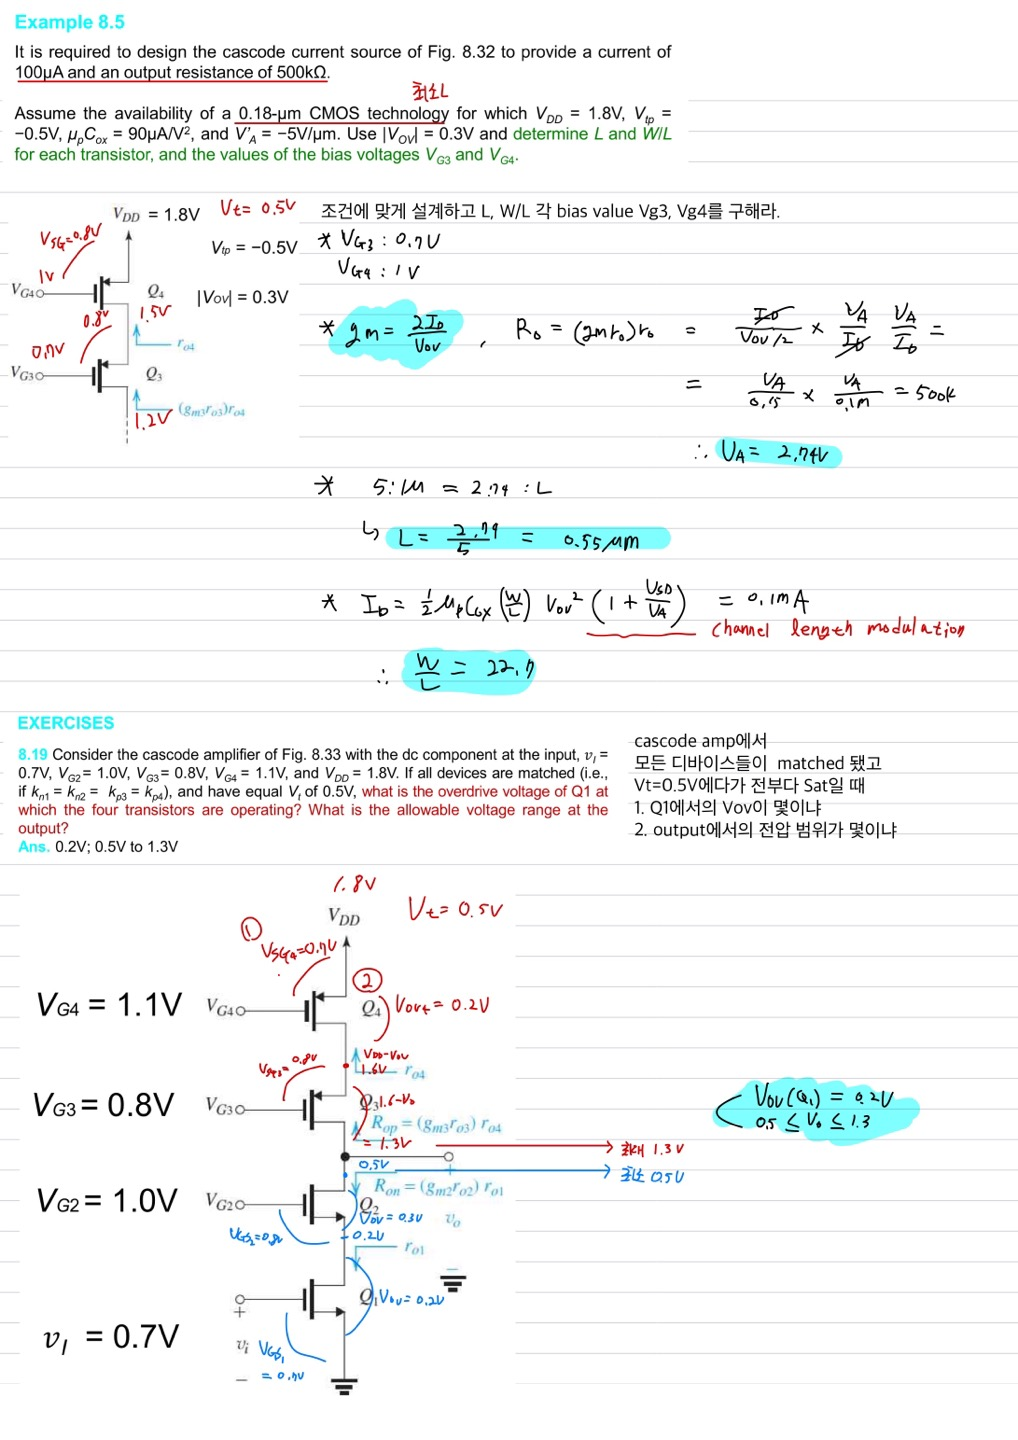 Example 8.5
It is required to design the cascode current source of Fig. 8.32 to provide a current of
100μA and an output resistance of 500kΩ.
최소L
Assume the availability of a 0.18-μm CMOS technology for which VDD = 1.8V, Vtp =
−0.5V, μpCox = 90μA/V², and V'A = −5V/μm. Use |VOV| = 0.3V and determine L and W/L
for each transistor, and the values of the bias voltages VG3 and VG4.
VDD = 1.8V
Vt = 0.5V
조건에 맞게 설계하고 L, W/L 각 bias value Vg3, Vg4를 구해라.
VSG=0.8V
Vtp = −0.5V
* VG3 : 0.7V
VG4 : 1V
1V
VG4
Q4
|VOV| = 0.3V
1.5V
0.8V
ro4
* gm = 2ID/VOV , Ro = (gmro)ro = ID/(VOV/2) × VA/ID VA/ID =
0.7V
VG3
Q3
= VA/0.15 × VA/0.1M = 500k
1.2V
(gm3ro3)ro4
∴ VA = 2.74V
* 5 : 1M = 2.74 : L
↳ L = 2.74/5 = 0.55 μm
* ID = 1/2 μpCox (W/L) VOV² (1 + VSD/VA) = 0.1mA
channel length modulation
∴ W/L = 22.7
EXERCISES
8.19 Consider the cascode amplifier of Fig. 8.33 with the dc component at the input, vI =
0.7V, VG2= 1.0V, VG3= 0.8V, VG4 = 1.1V, and VDD = 1.8V. If all devices are matched (i.e.,
if kn1 = kn2 = kp3 = kp4), and have equal Vt of 0.5V, what is the overdrive voltage of Q1 at
which the four transistors are operating? What is the allowable voltage range at the
output?
Ans. 0.2V; 0.5V to 1.3V
cascode amp에서
모든 디바이스들이 matched 됐고
Vt=0.5V에다가 전부다 Sat일 때
1. Q1에서의 Vov이 몇이냐
2. output에서의 전압 범위가 몇이냐
1.8V
VDD
Vt = 0.5V
①
VSG4=0.7V
②
VG4 = 1.1V
VG4
Q4
VOV4 = 0.2V
VDD-VOV
1.6V
ro4
VSG3= 0.8V
VG3 = 0.8V
VG3
Q3
1.6-Vo
Rop = (gm3ro3) ro4
= 1.3V
최대 1.3V
0.5V
최소 0.5V
VOV(Q1) = 0.2V
0.5 ≤ Vo ≤ 1.3
+
Ron = (gm2ro2) ro1
VG2 = 1.0V
VG2
Q2
VOV = 0.3V
vo
VGS2=0.8V
=0.2V
ro1
−
Q1
VOV = 0.2V
+
vI = 0.7V
vi
VGS1
= 0.7V
−